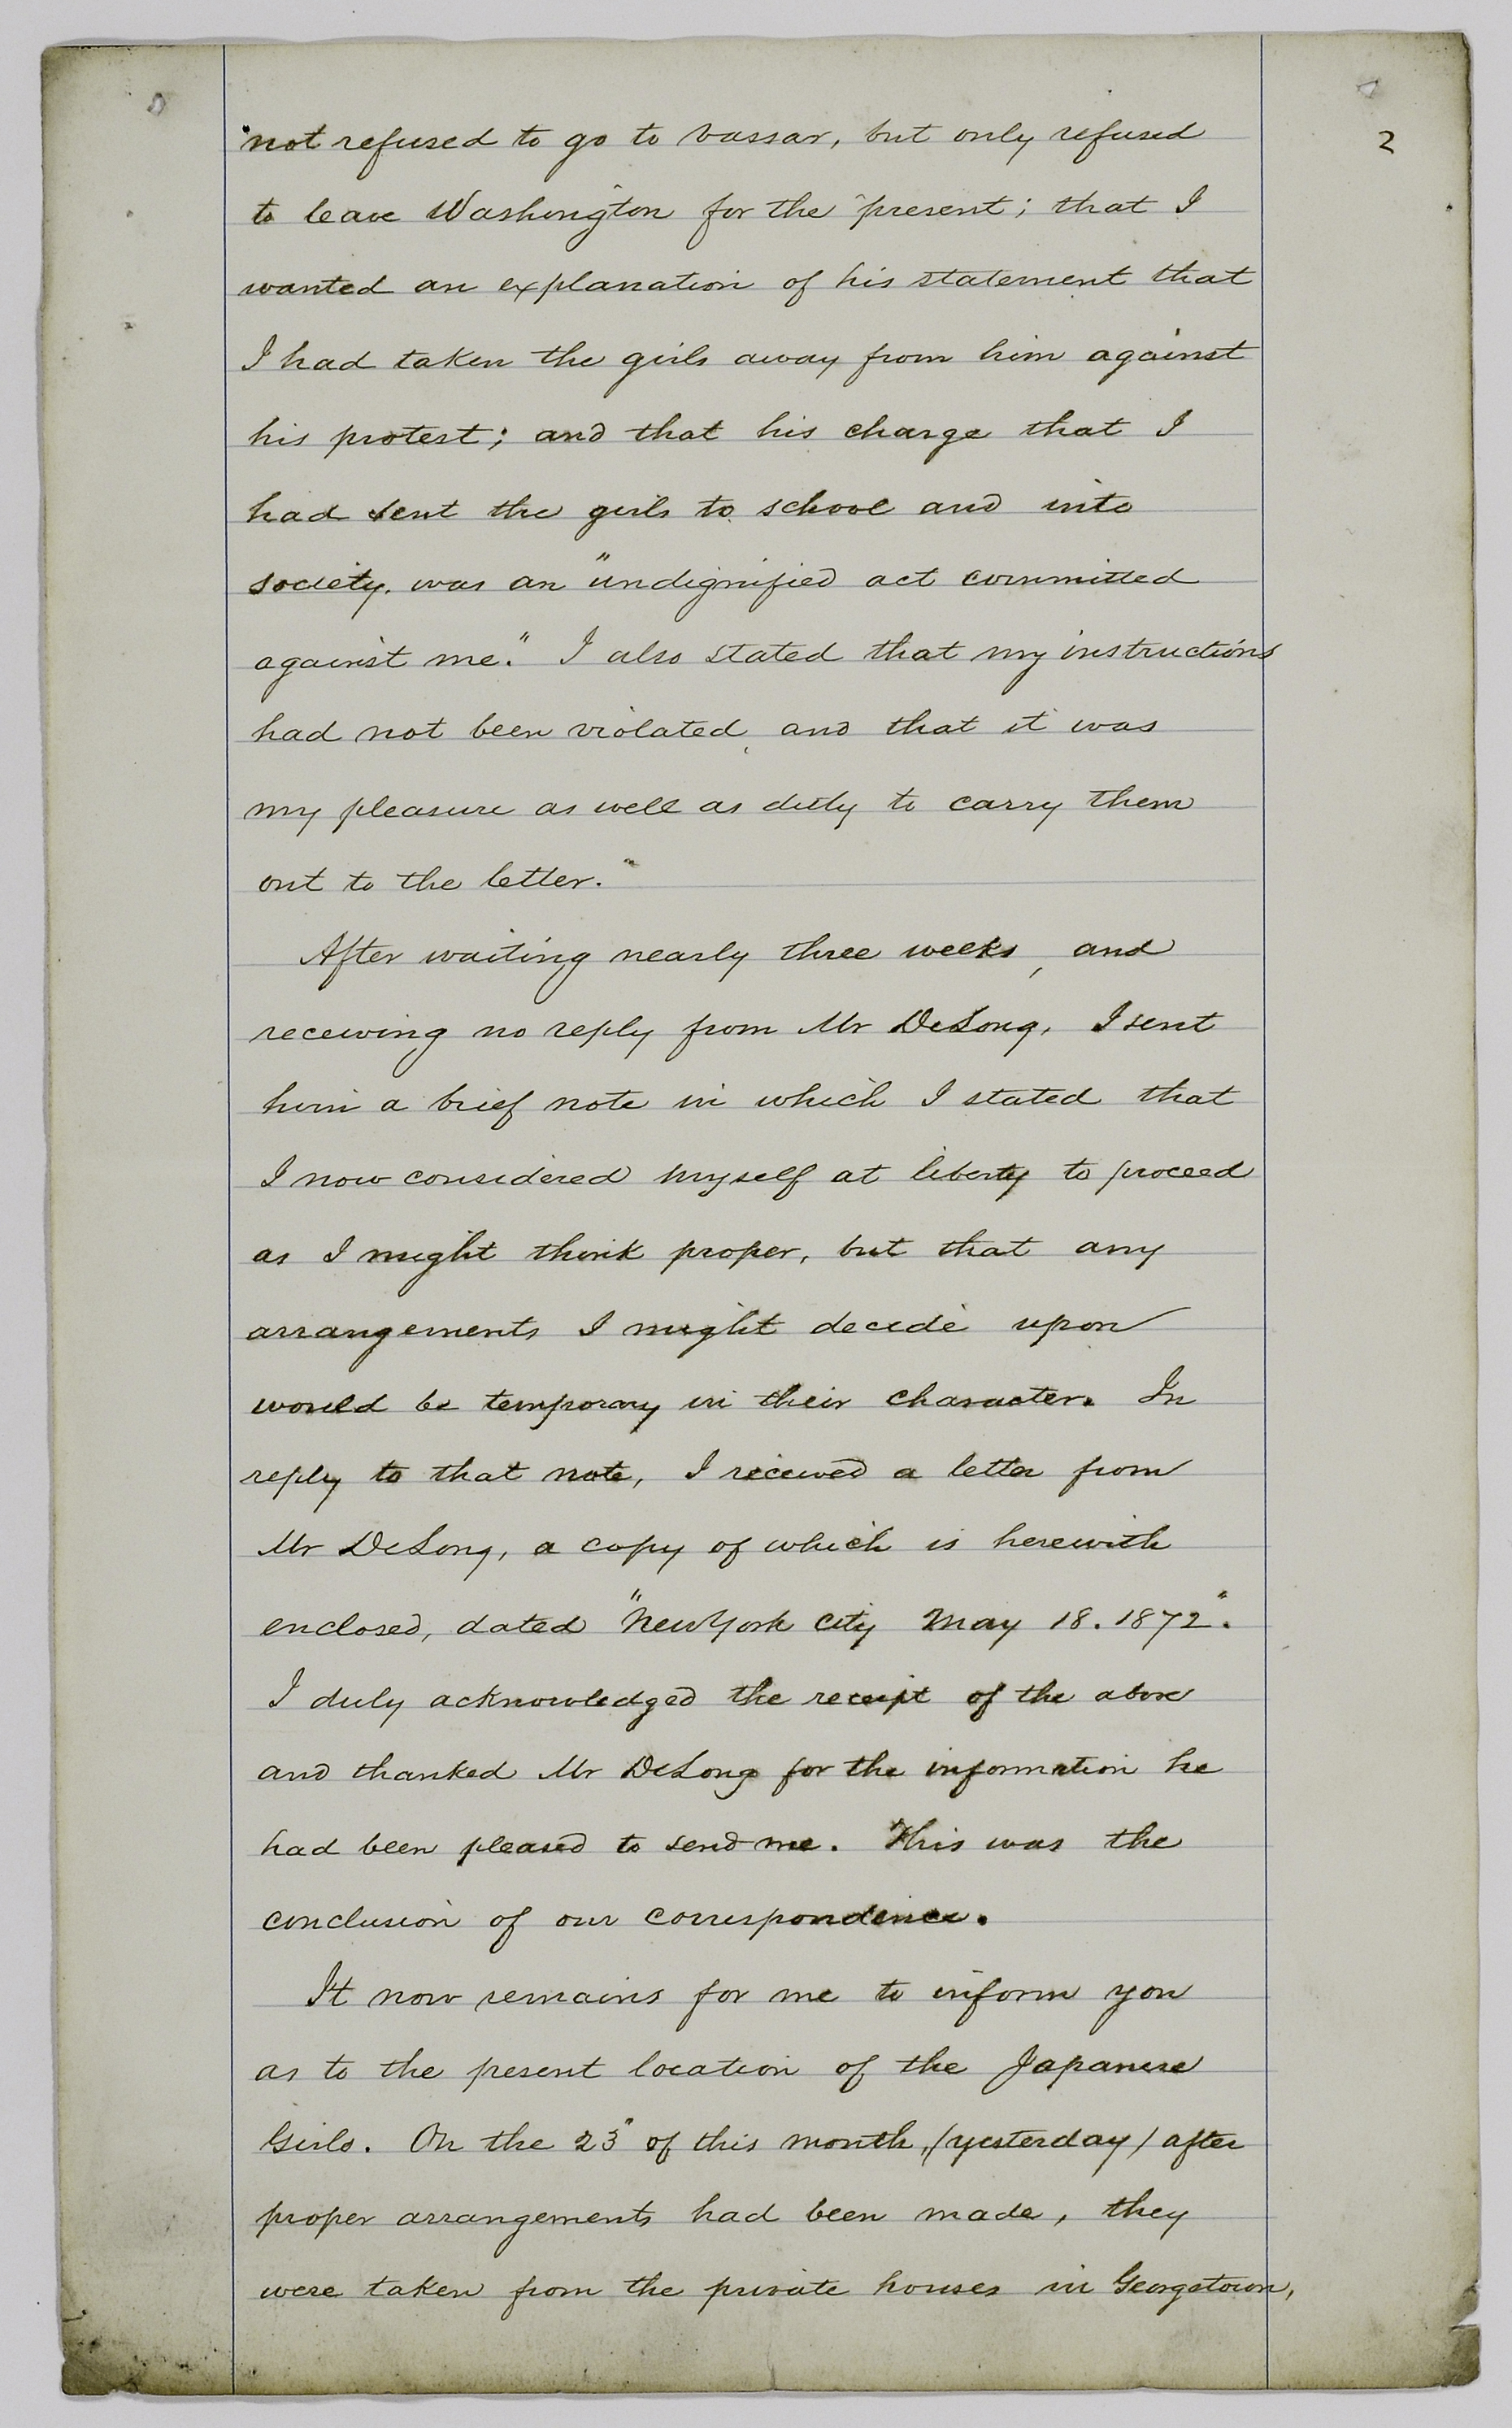 2
"not refused to go to Vassar, but only refused
to leave Washington for the present; that I
wanted an explanation of his statement that
I had taken the girls away from him against
his protest; and that his charge that I
had sent the girls to school and into
society, was an "undignified act committed
against me." I also stated that my instructions
had not been violated, and that it was
my pleasure as well as duty to carry them
out to the letter."
After waiting nearly three weeks, and
receiving no reply from Mr DeLong, I sent
him a brief note in which I stated that
I now considered myself at liberty to proceed
as I might think proper, but that any
arrangements I might decide upon
would be temporary in their character. In
reply to that note, I received a letter from
Mr DeLong, a copy of which is herewith
enclosed, dated "New York City May 18. 1872".
I duly acknowledged the receipt of the above
and thanked Mr DeLong for the information he
had been pleased to send me. This was the
conclusion of our correspondence.
It now remains for me to inform you
as to the present location of the Japanese
Girls. On the 23" of this month, (yesterday) after
proper arrangements had been made, they
were taken from the private houses in Georgetown,